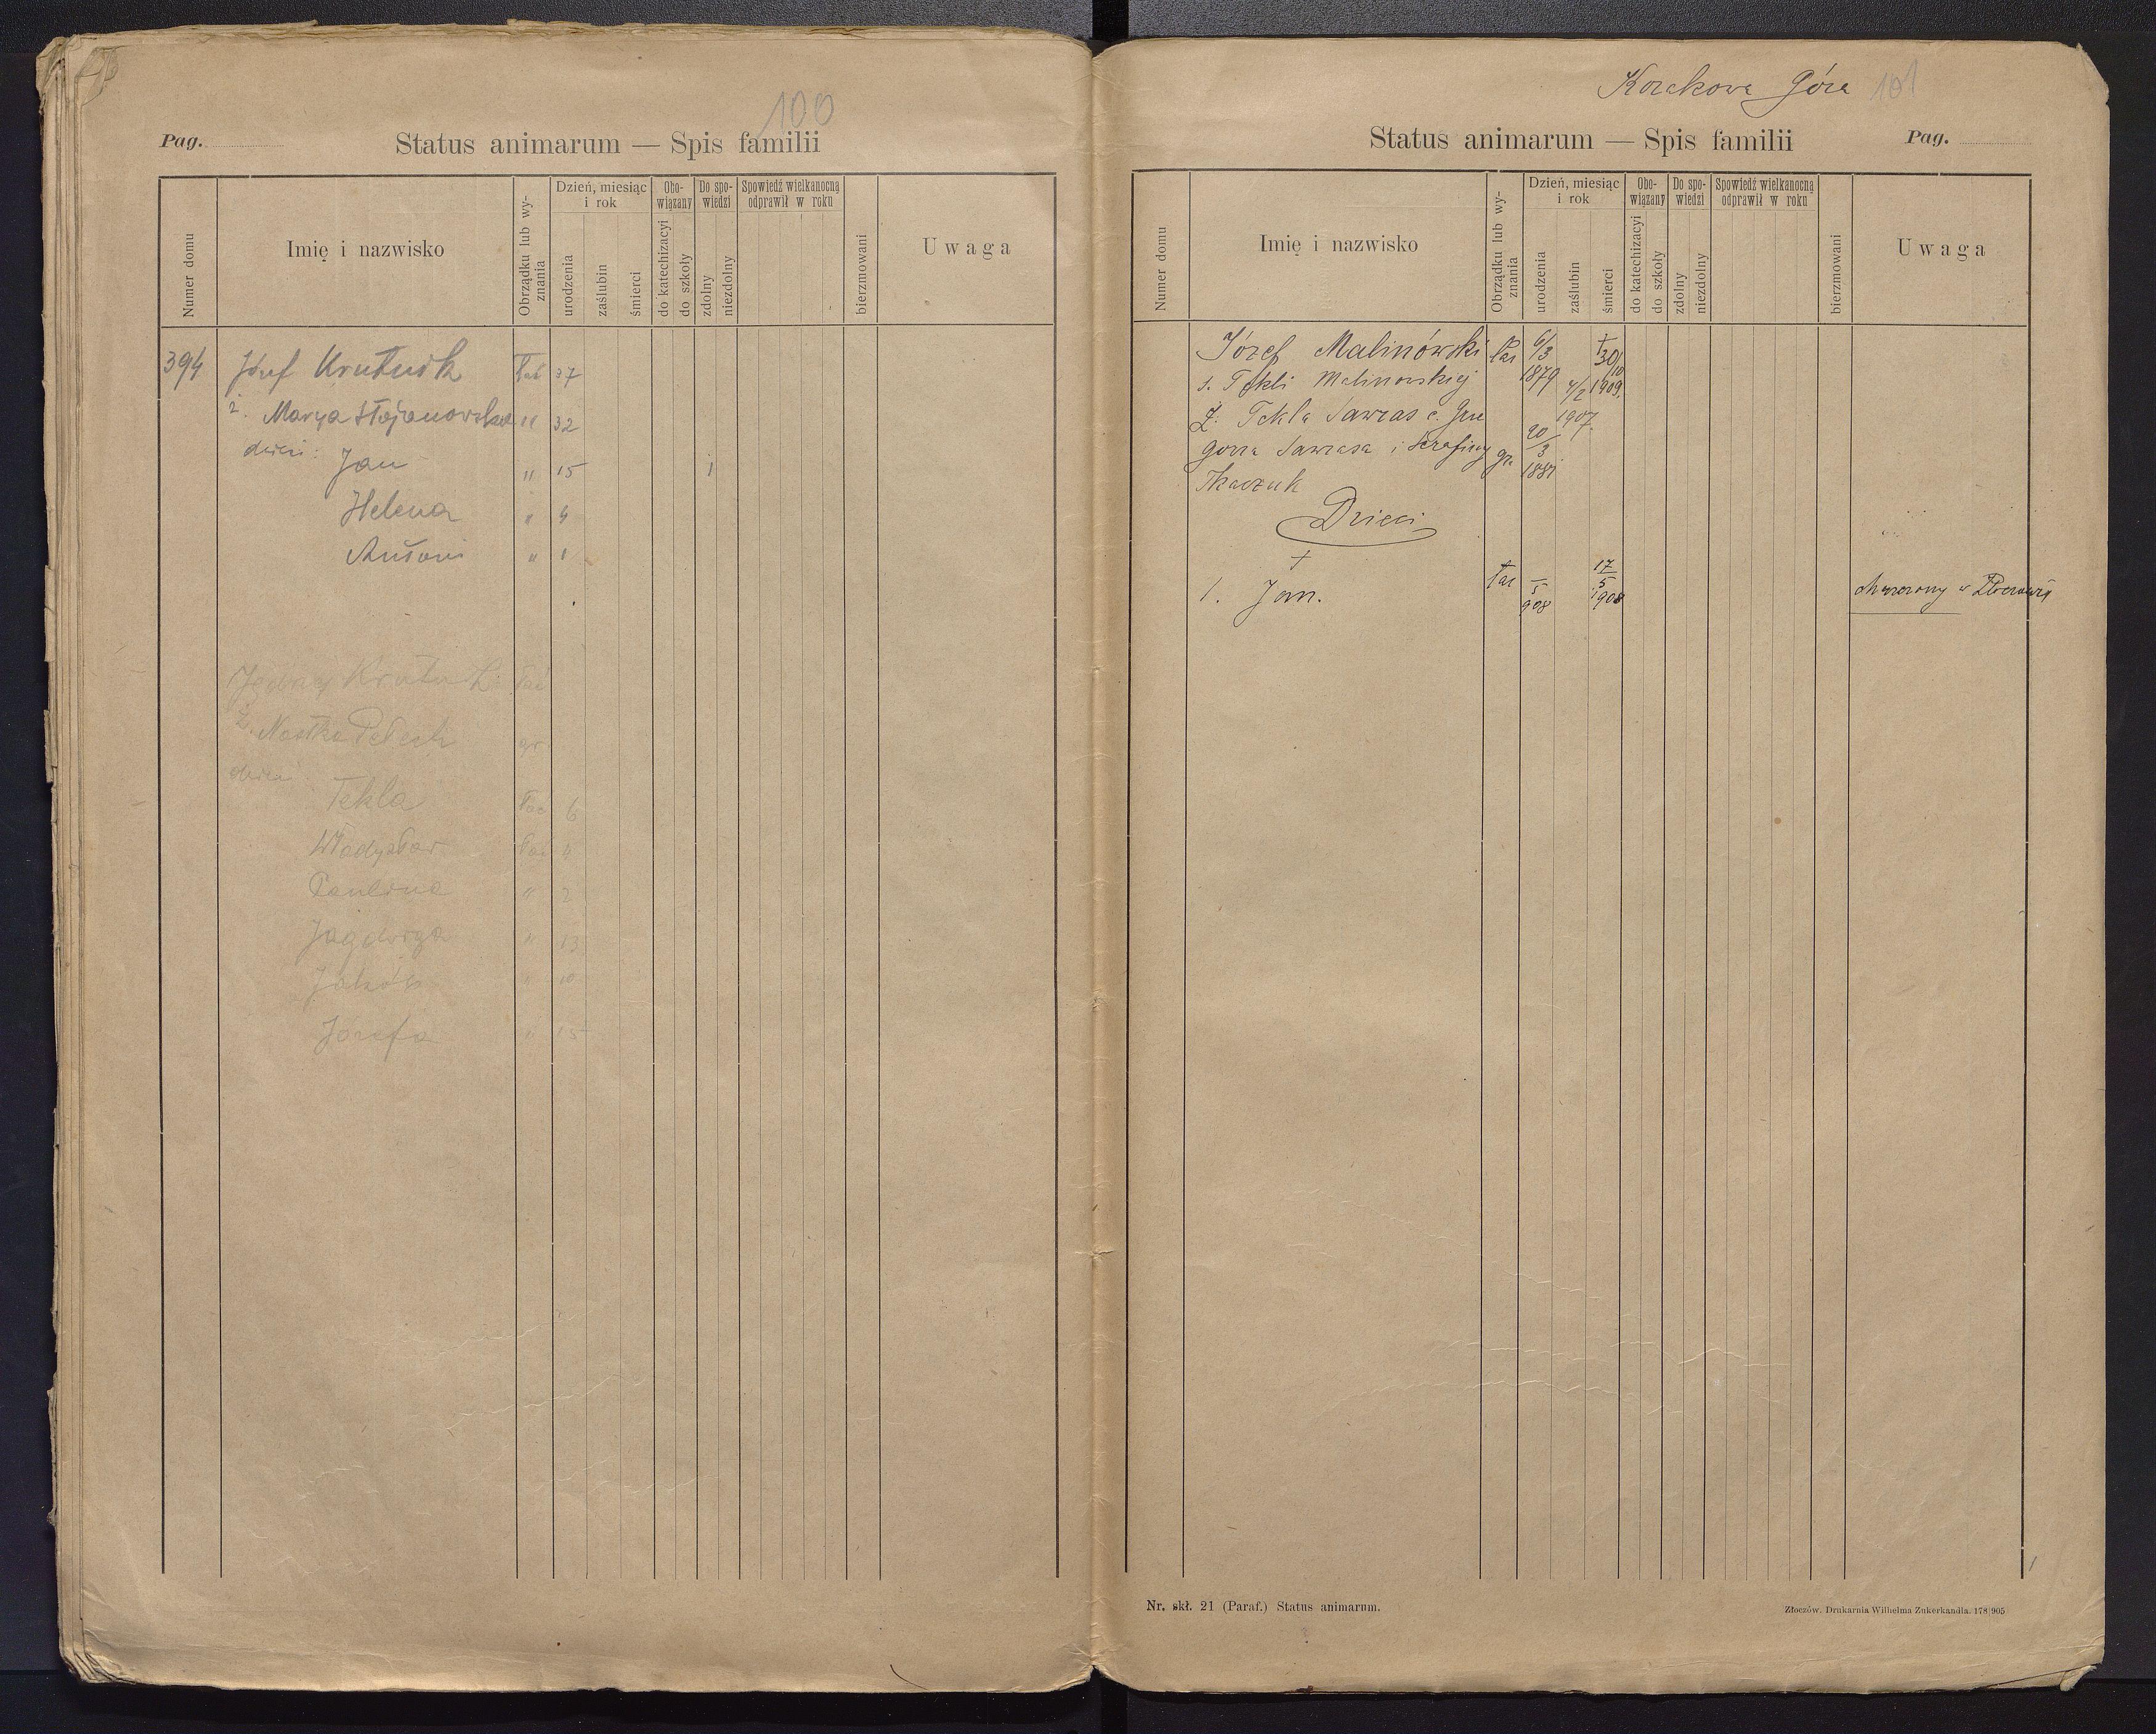 100
Pag.
Status animarum — Spis familii
Numer domu
Imię i nazwisko
Obrządku lub wy-
znania
Dzień, miesiąc
i rok
urodzenia
zaślubin
śmierci
Obo-
wiązany
do katechizacyi
do szkoły
Do spo-
wiedzi
zdolny
niezdolny
Spowiedź wielkanocną
odprawił w roku
bierzmowani
Uwaga
394 Józef Krutnik łać 37
ż. Marya Stojanowska " 32
dzieci: Jan " 15 1
Helena " 4
Antoni " 1
Krutnik łać
ż. Nastka gr.
dzieci
Tekla łac 6
Władysław łać 4
Paulina " 2
Jagdwiga " 13
Jakób " 10
Józefa " 15
Korakowa Góra 101
Status animarum — Spis familii
Pag.
Numer domu
Imię i nazwisko
Obrządku lub wy-
znania
Dzień, miesiąc
i rok
urodzenia
zaślubin
śmierci
Obo-
wiązany
do katechizacyi
do szkoły
Do spo-
wiedzi
zdolny
niezdolny
Spowiedź wielkanocną
odprawił w roku
bierzmowani
Uwaga
Józef Malinówski łac 6/3 1879 † 30/10 1909.
s. Tekli Malinowskiej 4/2 1907.
Ż. Tekla Sawras c. Grze
gorza Sawrasa i Serafiny gr. 20/3 1881
Tkaczuk
Dzieci
†
1. Jan. łac 5 908 17/5 1908
Nr. skł. 21 (Paraf.) Status animarum.
Złoczów. Drukarnia Wilhelma Zukerkandla. 178|905